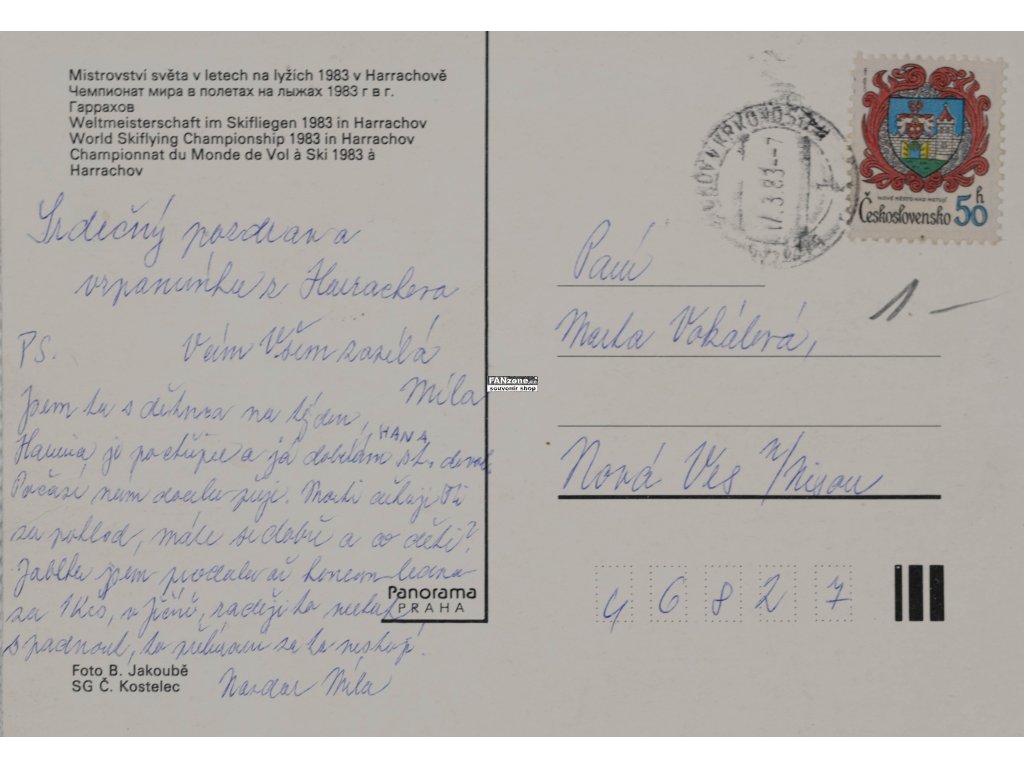 Mistrovství světa v letech na lyžích 1983 v Harrachově
Чемпионат мира в полетах на лыжах 1983 г в г.
Гаррахов
Weltmeisterschaft im Skifliegen 1983 in Harrachov
World Skiflying Championship 1983 in Harrachov
Championnat du Monde de Vol à Ski 1983 à
Harrachov
Srdečný pozdrav a
vzpomínku z Harrachova
Vám Všem zasílá
Míla
PS.
Jsem tu s dětma na týden,
HANA
Hanina je po chřipce a já dobírám st. dovol.
Počasí nám docela přeje. Marti děkuji Ti
za pohled, máte se dobře a co děti?
Jablka jsem prodala až koncem ledna
za 1 Kčs, v říjnu, raději to nechat
spadnout, to sbírání za to nestojí!
Nazdar Míla
Foto B. Jakoubě
SG Č. Kostelec
Panorama
PRAHA
FANzone.cz
souvenir shop
17.3.83-7
1
NOVÉ MĚSTO NAD METUJÍ
Československo 50 h
1.-
Paní
Marta Vokálová,
Nová Ves n/Nisou
46827